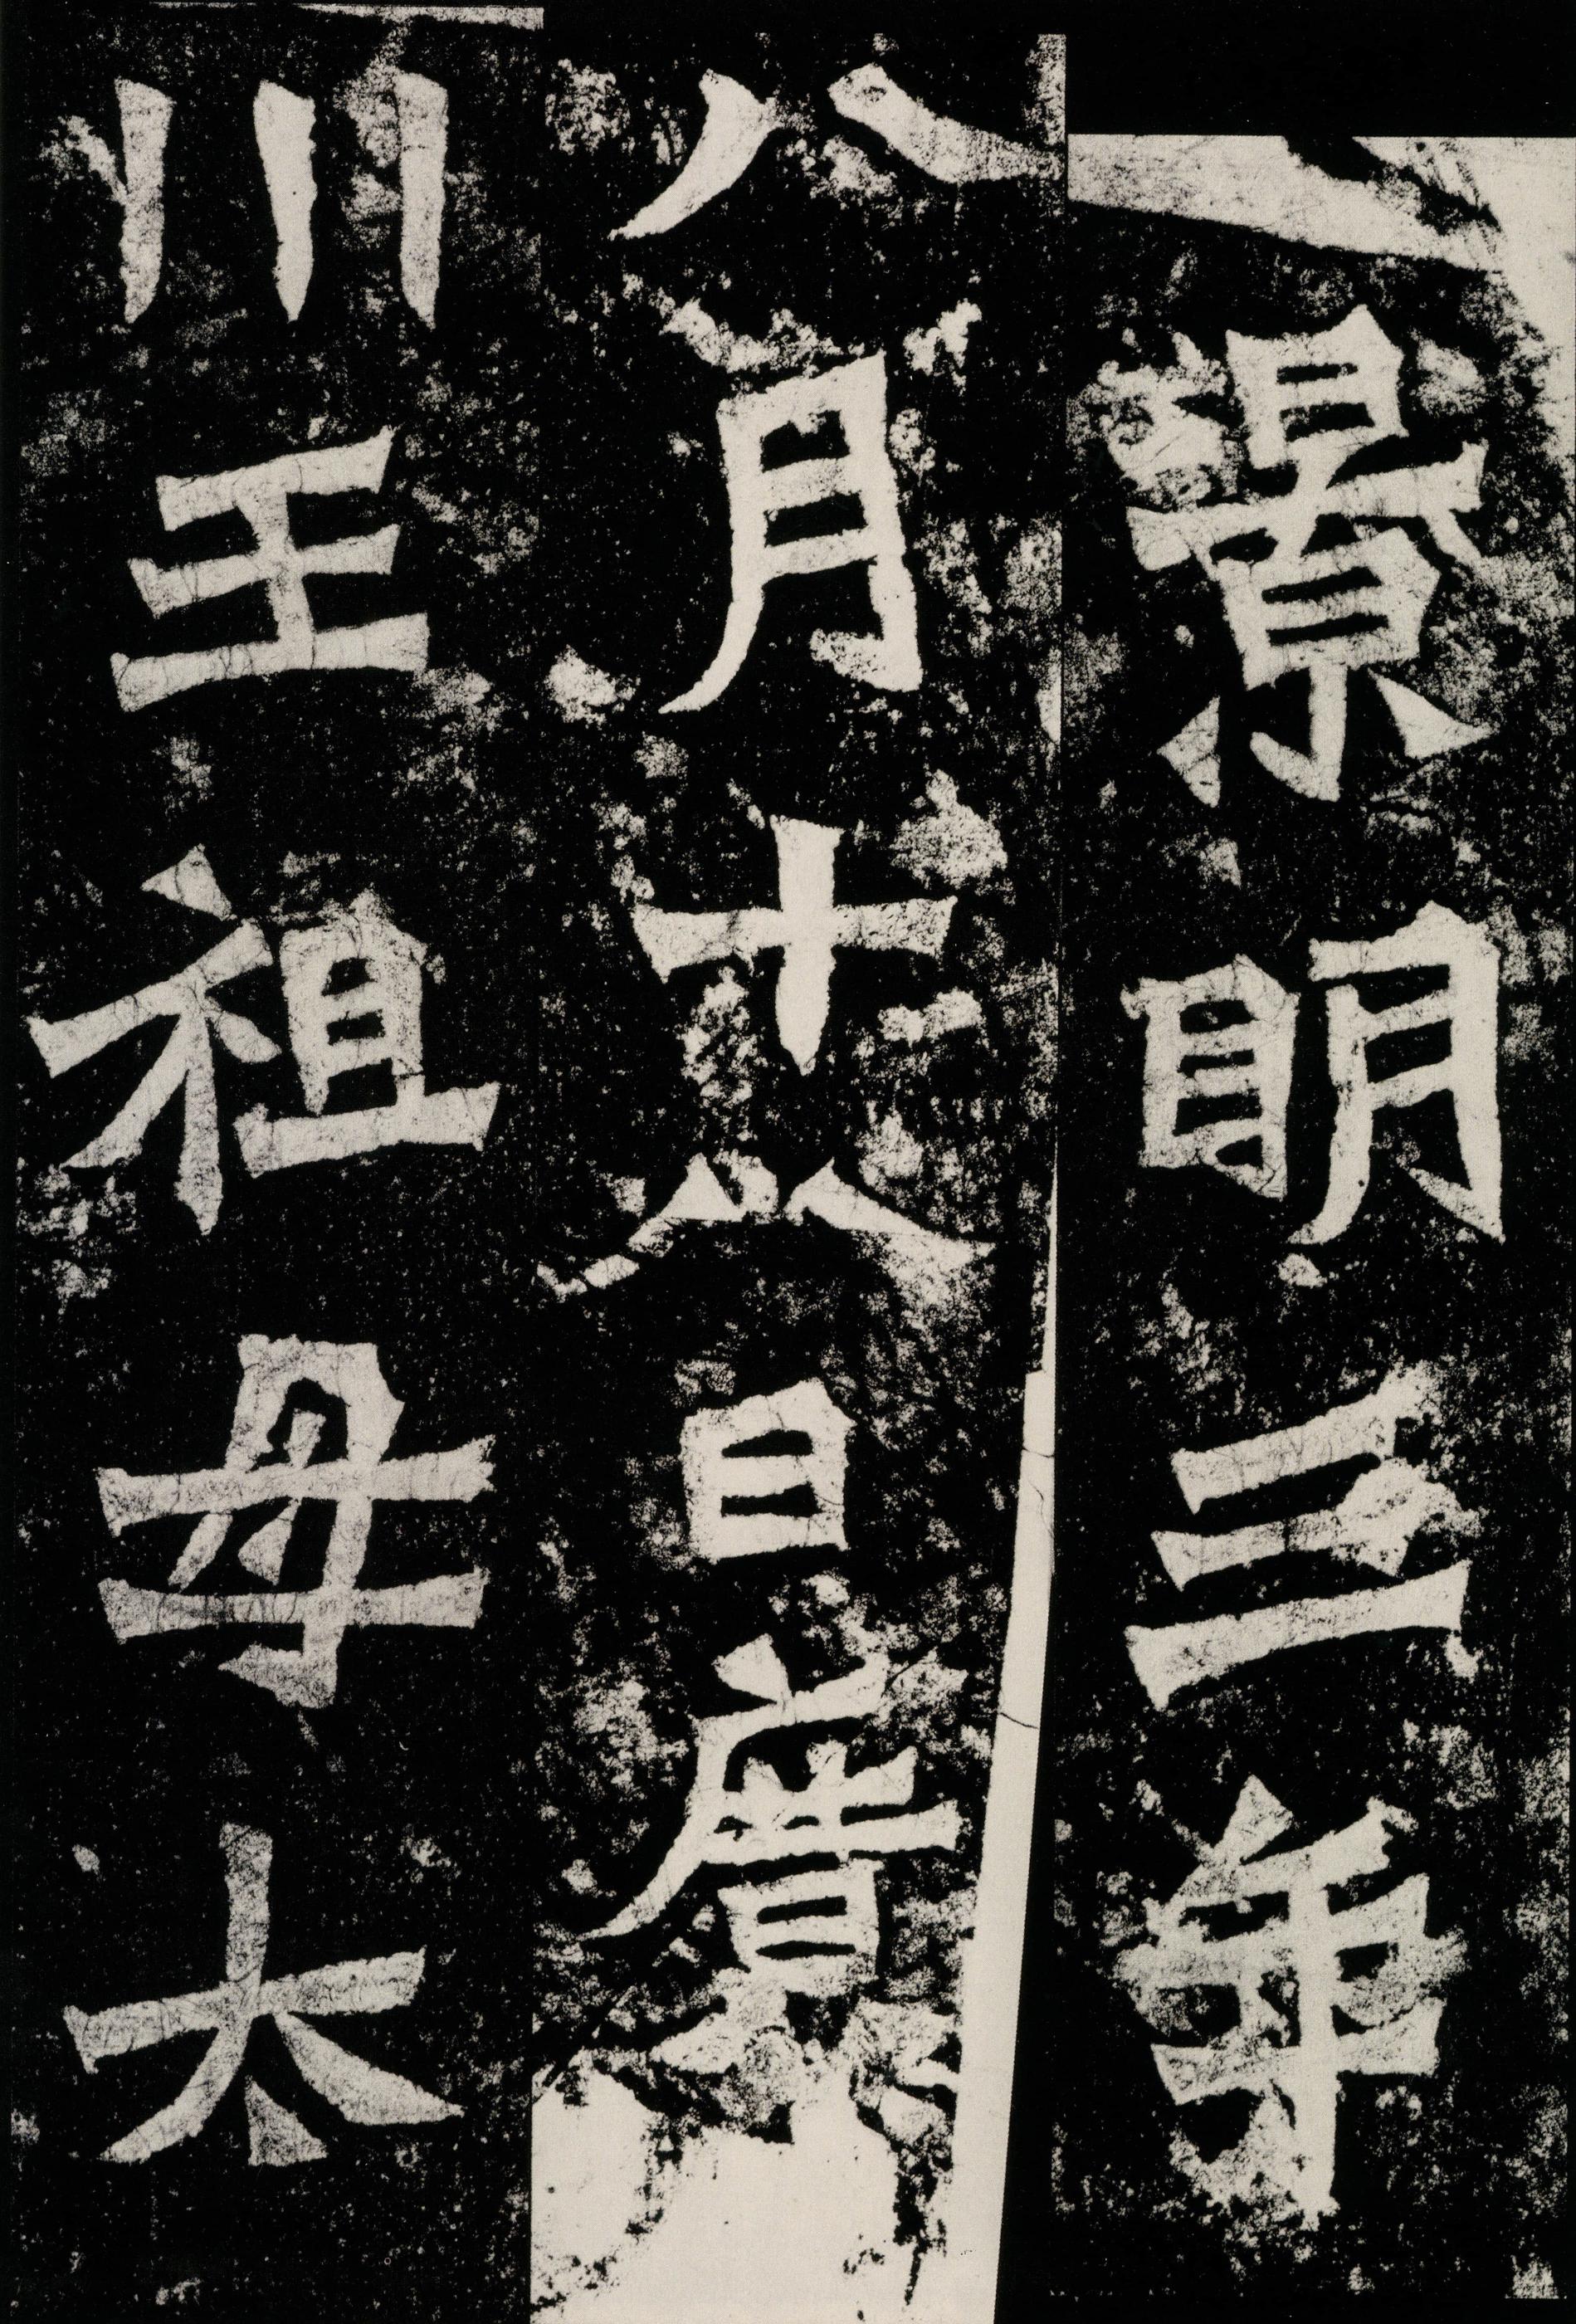 景明三年
八月十八日廣
川王祖母太